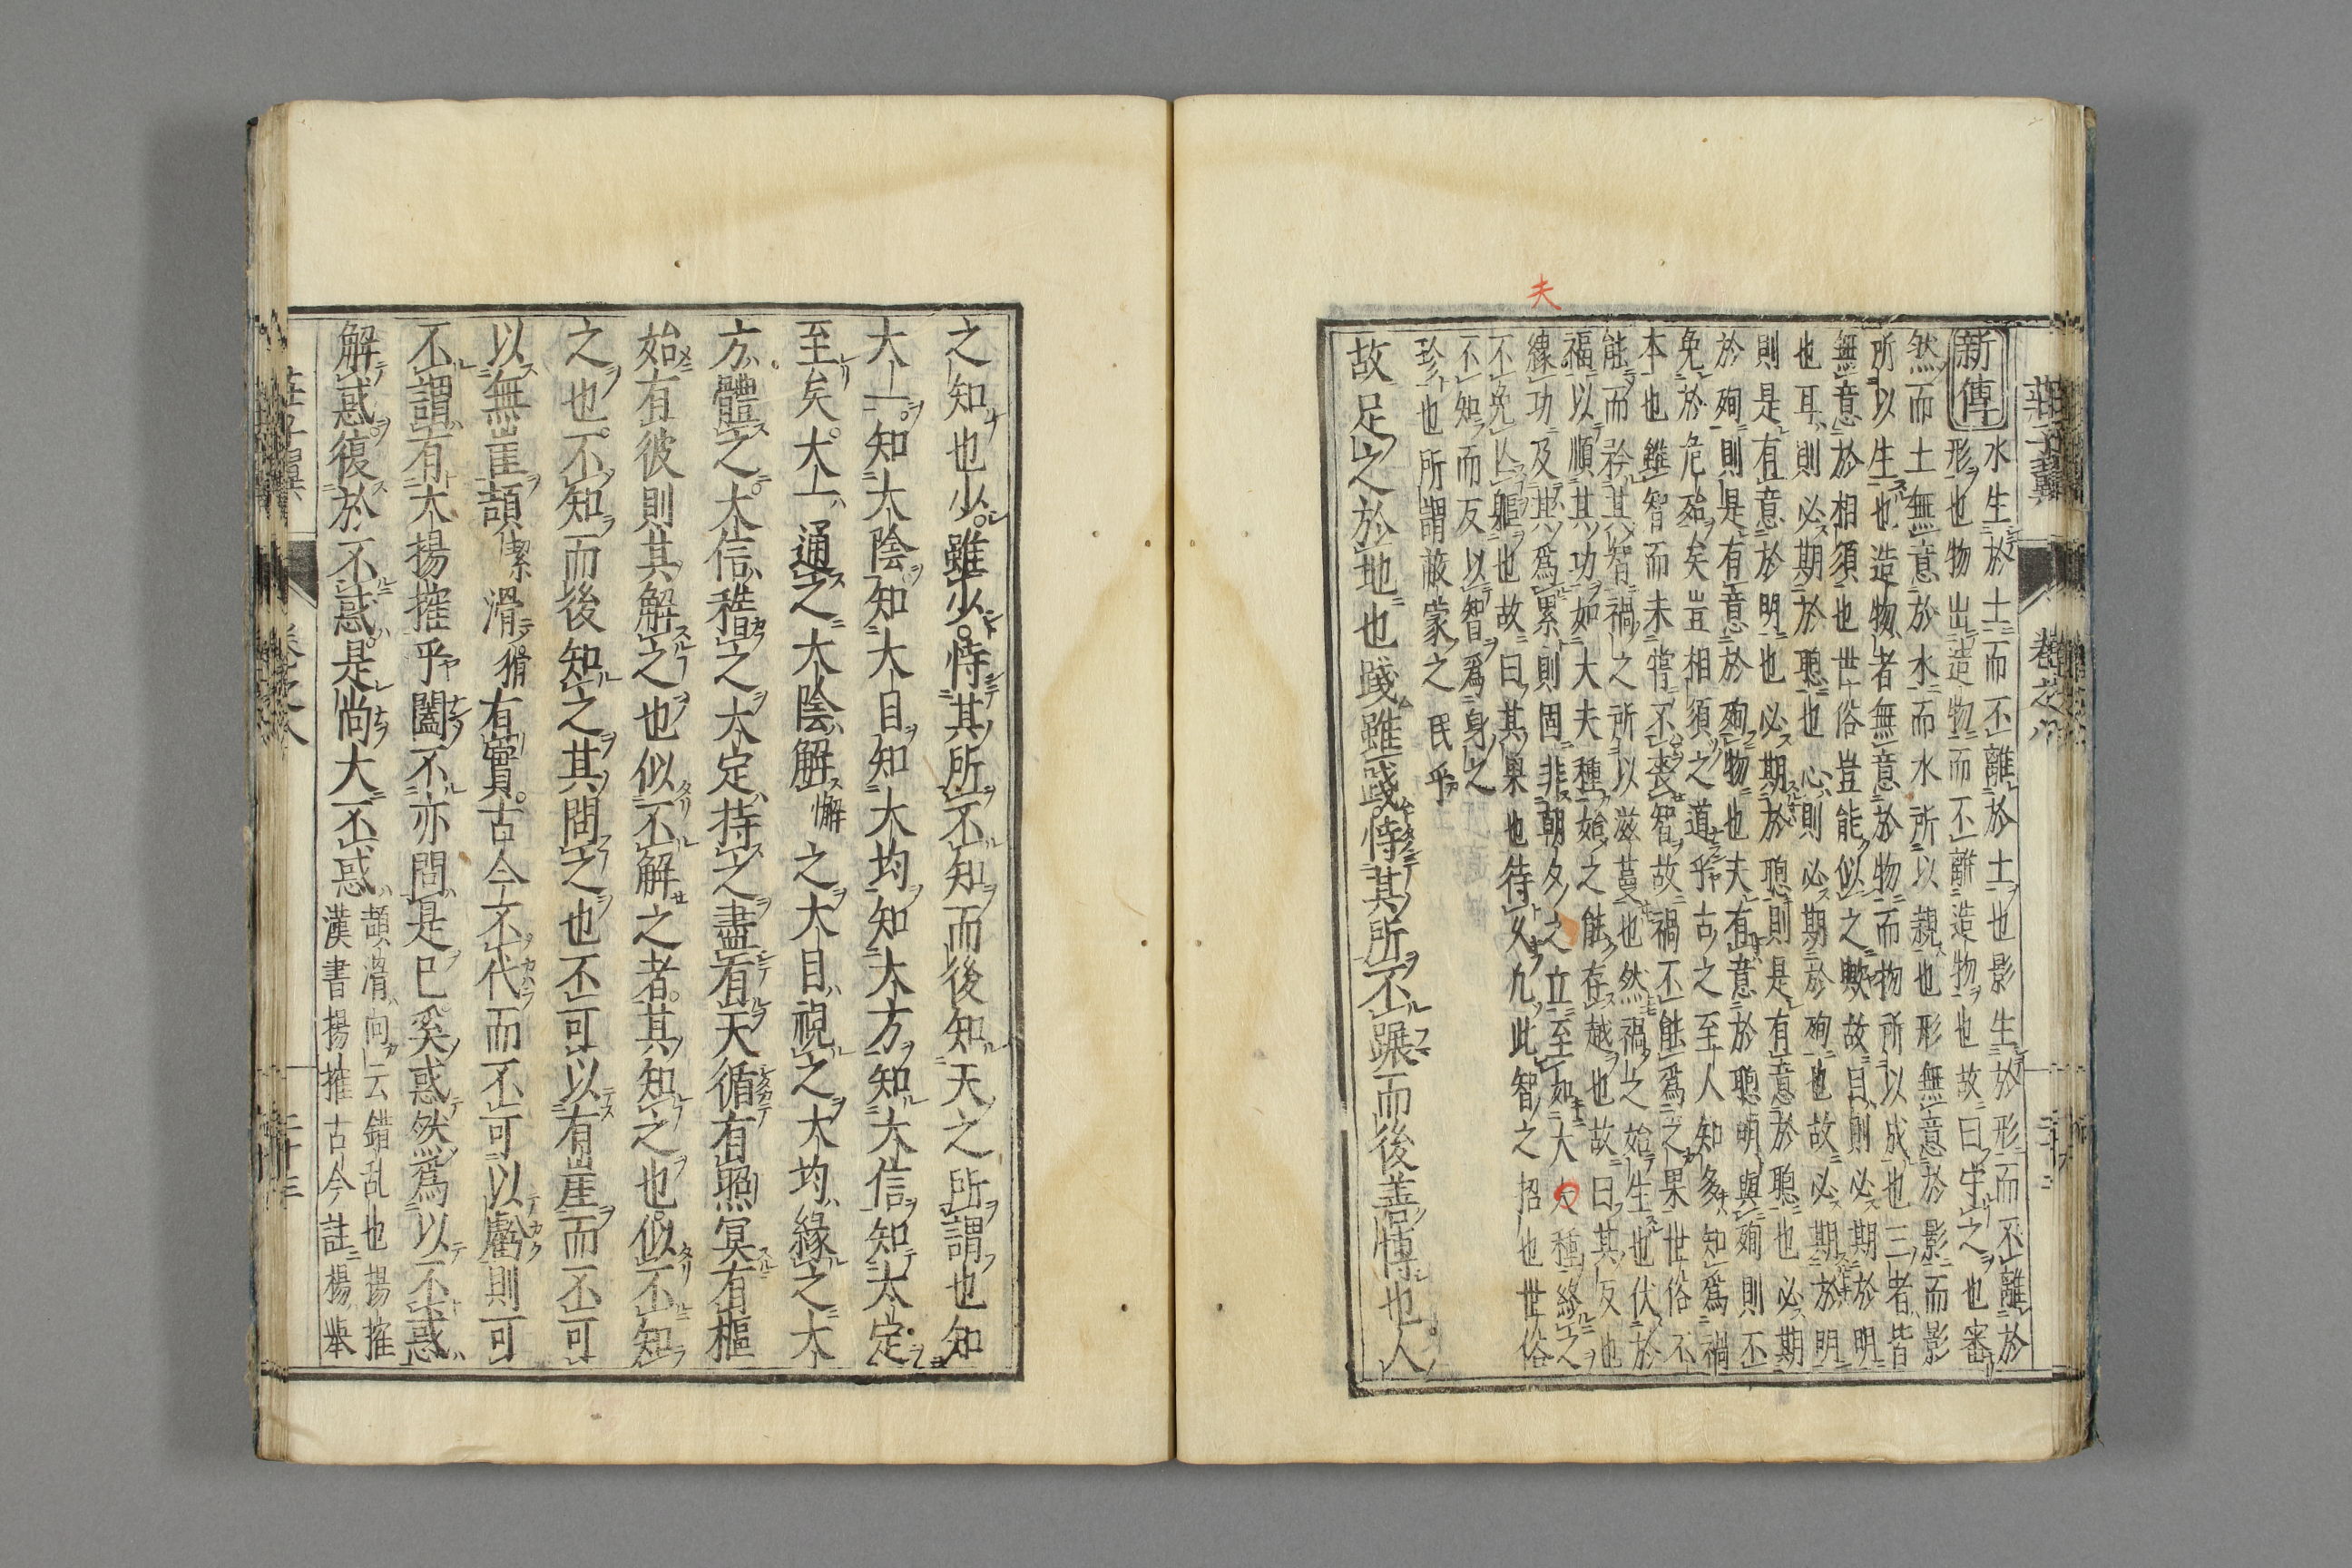 莊子翼 卷之六
新傳 水生於土而不離於土也影生於形而不離於
形也物出造物而不離造物也故曰守之也審
然而土無意於水而水所以親也形無意於影而影
所以生也造物者無意於物而物所以成也三者皆
無意於相須也世俗豈能似之歟故目則必期於明
也耳則必期於聰也心則必期於殉也故必期於明
則是有意於明也必期於聰則是有意於聰也必期
於殉則是有意於殉物也夫有意於聰明與殉則不
免於危殆矣豈相須之道乎古之至人知多知爲禍
本也雖智而未嘗不喪智故禍不能爲之果世俗不
能而矜其智禍之所以滋蔓也然禍之始生也伏於
福以順其功如大夫種始之能存越也故曰其反也
緣功及其爲累則固非朝夕之立至如大夫種終之
夫
不免亾軀也故曰其果也待久凢此智之招也世俗
不知而反以智爲身之
珍也所謂蔽蒙之民乎
故足之於地也踐雖踐恃其所不蹍而後善博也人
之知也少雖少恃其所不知而後知天之所謂也知
大一知大陰知大目知大均知大方知大信知大定
至矣大一通之大陰解懈之大目視之大均緣之大
方體之大信稽之大定持之盡有天循有照冥有樞
始有彼則其解之也似不解之者其知之也似不知
之也不知而後知之其問之也不可以有崖而不可
以無崖頡絜滑猾有實古今不代而不可以虧則可
不謂有大揚搉乎闔不亦問是已奚惑然爲以不惑
解惑復於不惑是尚大不惑
頡滑向云錯乱也揚搉
漢書揚搉古今註揚舉
莊子翼 卷之六 二十三